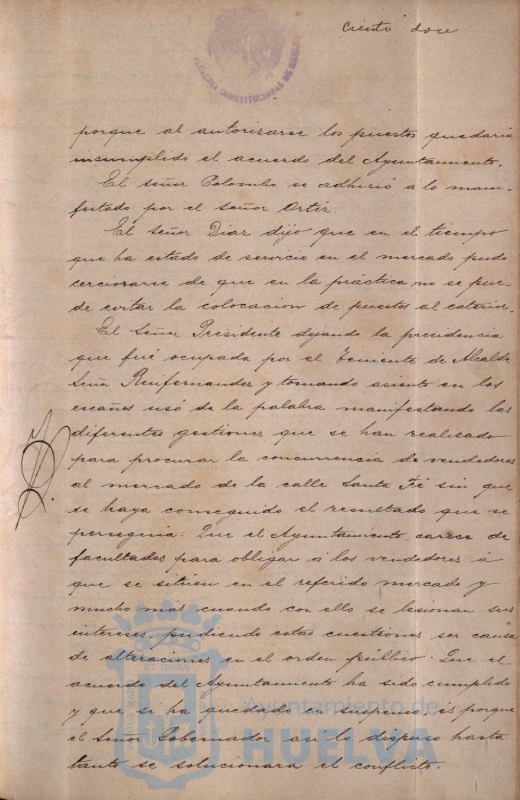 ciento doce
ALCALDIA CONSTITUCIONAL DE HUELVA
porque al autorizarse los puestos quedaria
incumplido el acuerdo del Ayuntamiento.
El señor Colombo se adhirió á lo mani-
festado por el señor Ortiz.
El señor Diaz dijo que en el tiempo
que ha estado de servicio en el mercado pudo
cerciorarse de que en la práctica no se pue-
de evitar la colocacion de puestos al exterior.
El Señor Presidente dejando la presidencia
que fué ocupada por el Teniente de Alcalde
Señor Ruifernandez y tomando asiento en los
escaños usó de la palabra manifestando las
diferentes gestiones que se han realizado
para procurar la concurrencia de vendedores
al mercado de la calle Santa Fé sin que
se haya conseguido el resultado que se
perseguia: Que el Ayuntamiento carece de
facultades para obligar á los vendedores á
que se sitúen en el referido mercado y
mucho más cuando con ello se lesionan sus
intereses, pudiendo estas cuestiones ser causa
de alteraciones en el orden público: Que el
acuerdo del Ayuntamiento ha sido cumplido
y que si ha quedado en suspenso, es porque
el Señor Gobernador así lo dispuso hasta
tanto se solucionara el conflicto.
Ayuntamiento de
HUELVA